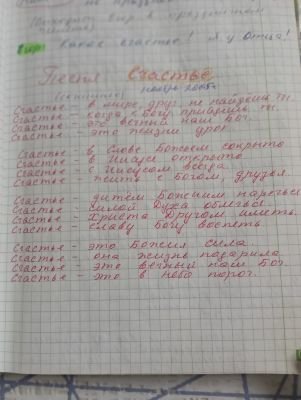 не
(выходит Кир в праздничном
Кир: какое счастье! я у Отца!
Песня Счастье
ноябрь 2005г
Счастье - в мире, друг, не найдёшь ты.
Счастье - когда к Богу придёшь ты.
Счастье - это вечный наш Бог.
Счастье - это жизни урок.
Счастье - в Слове Божьем сокрыто
Счастье - в Иисусе открыто
Счастье - с Иисусом всегда
Счастье - жить с Богом, друзья.
Счастье - дитём Божиим наречься
Счастье - силой Духа облечься
Счастье - Христа Другом иметь.
Счастье - славу Богу воспеть.
Счастье - это Божия сила
Счастье - она жизнь подарила
Счастье - это вечный наш Бог
Счастье - это в небо порог.